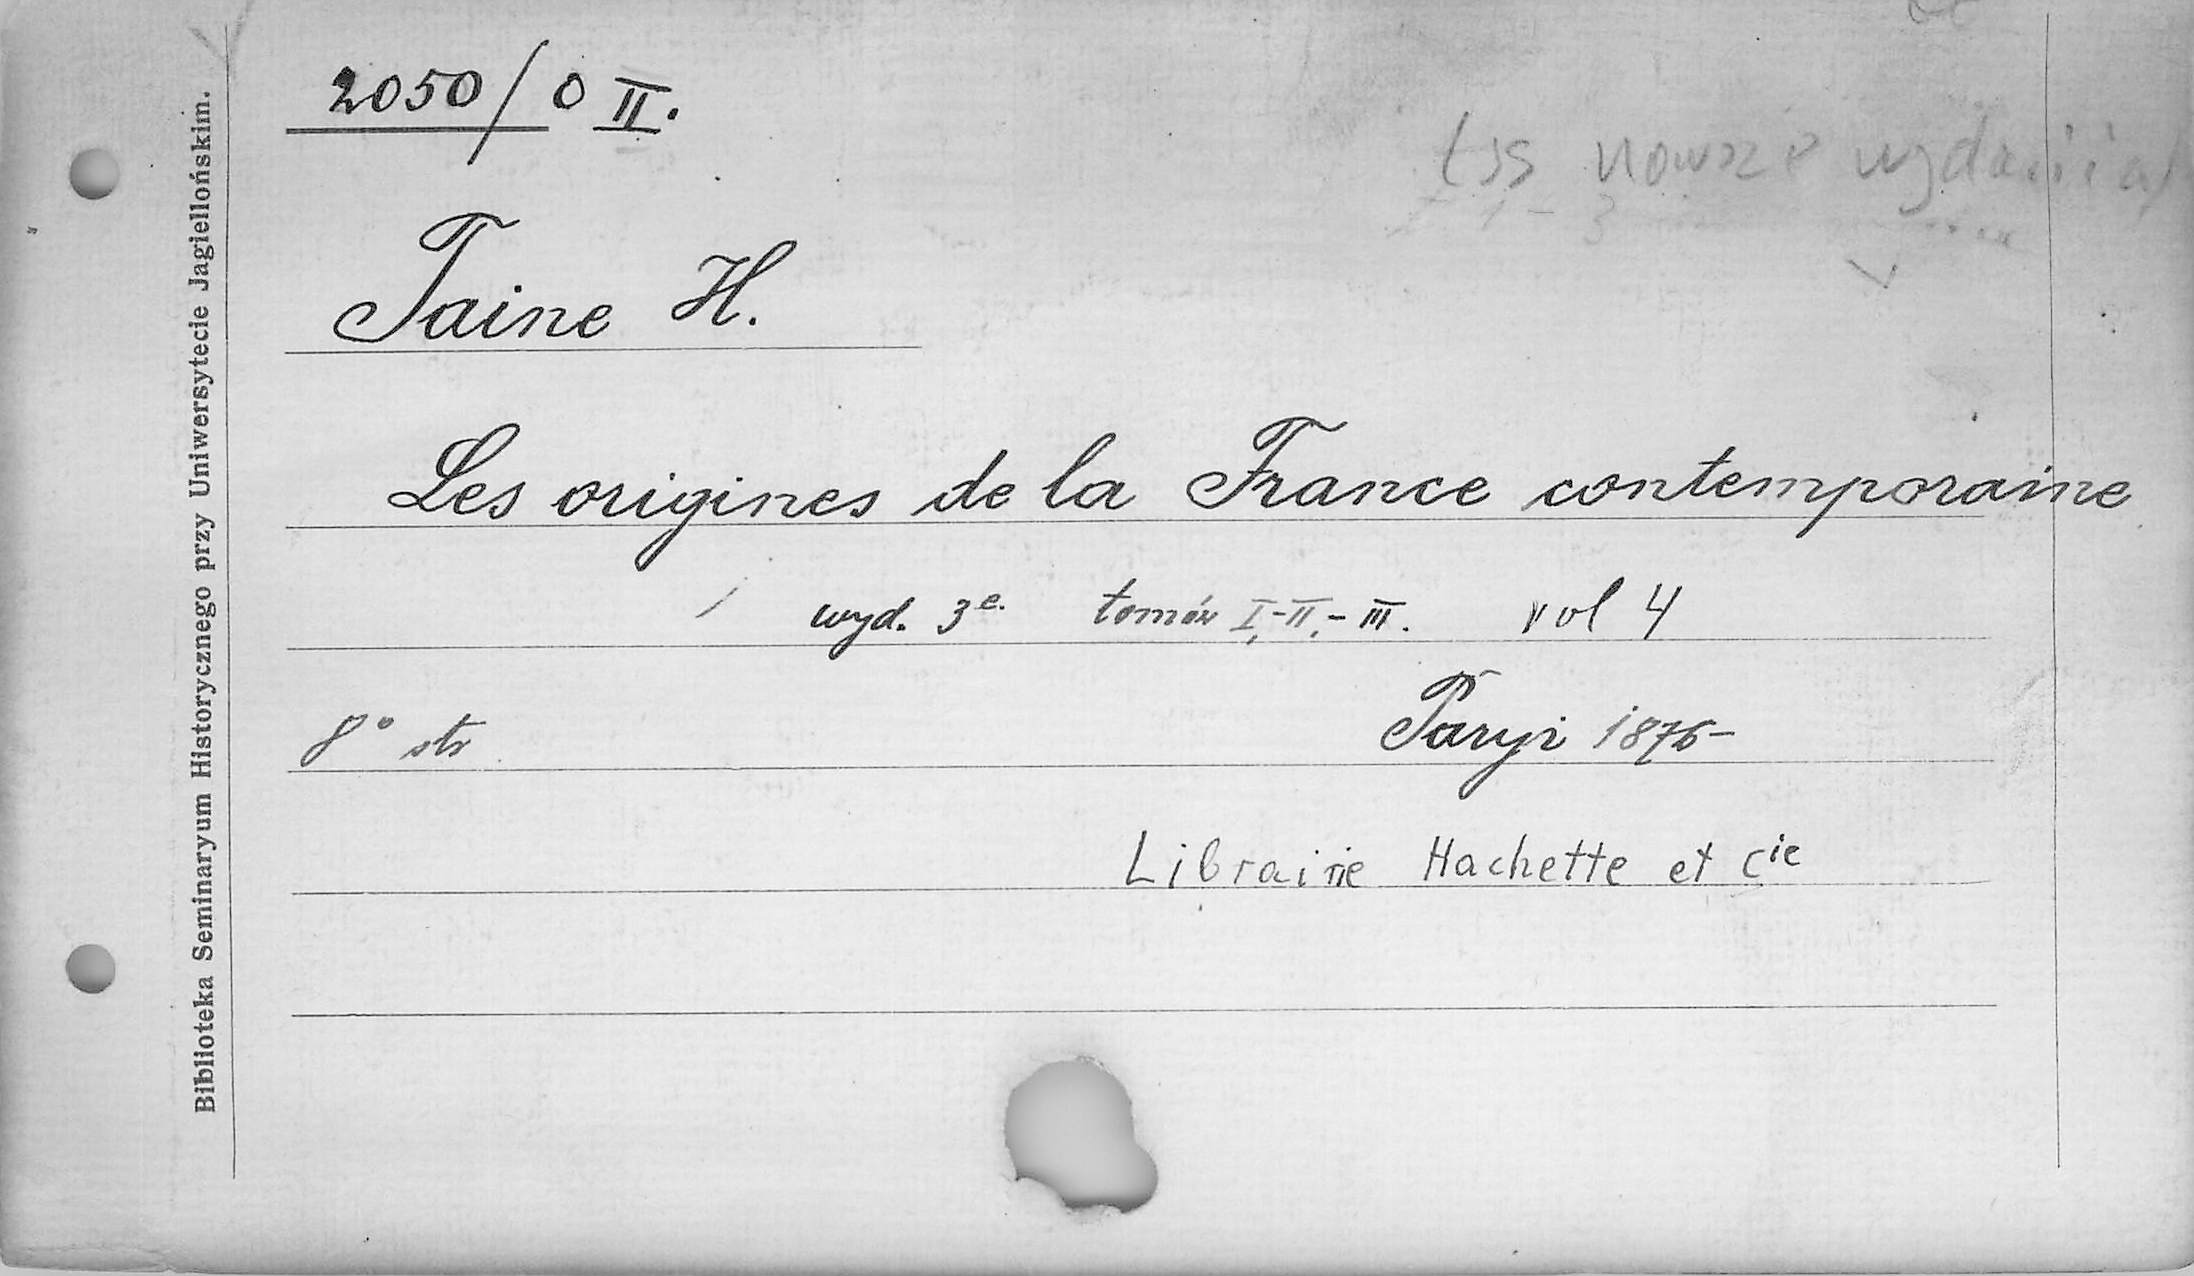 Biblioteka Seminaryum Historycznego przy Uniwersytecie Jagiellońskim.
2050/O II.
nowsze wydania
1 - 3
Taine H.
Les origines de la France contemporaine
wyd. 3e. tomów I,-II,-III. vol 4
8° str
Paryż 1876-
Librairie Hachette et Cie